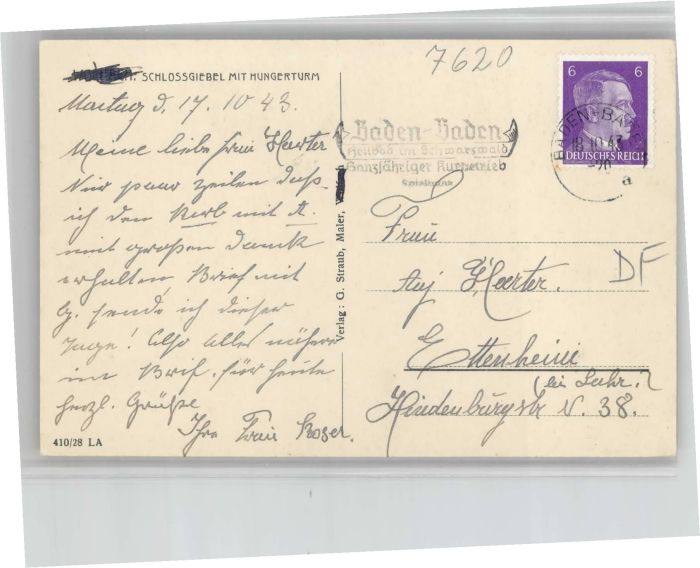 7620
SCHLOSSGIEBEL MIT HUNGERTURM
6 6
DEUTSCHES REICH
BADEN-BADEN
18.10.43
a
Baden-Baden
Heilbad im Schwarzwald
Ganzjähriger Kurbetrieb
Montag d. 17. 10 43.
Meine liebe Frau Harter
Nur paar Zeilen daß
ich den Korb mit
mit großen Dank
erhalten Brief mit
G. sende ich dieser
Tage! Also alles nähere
im Brief. für heute
herzl. Grüße
Ihre Frau
Verlag: G. Straub, Maler,
Frau
Harter.
DF
Ettenheim
(bei Lahr.)
Hindenburgstr N. 38.
410/28 LA